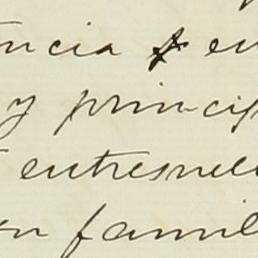 ncia & en
y princip
entresuel
n famil